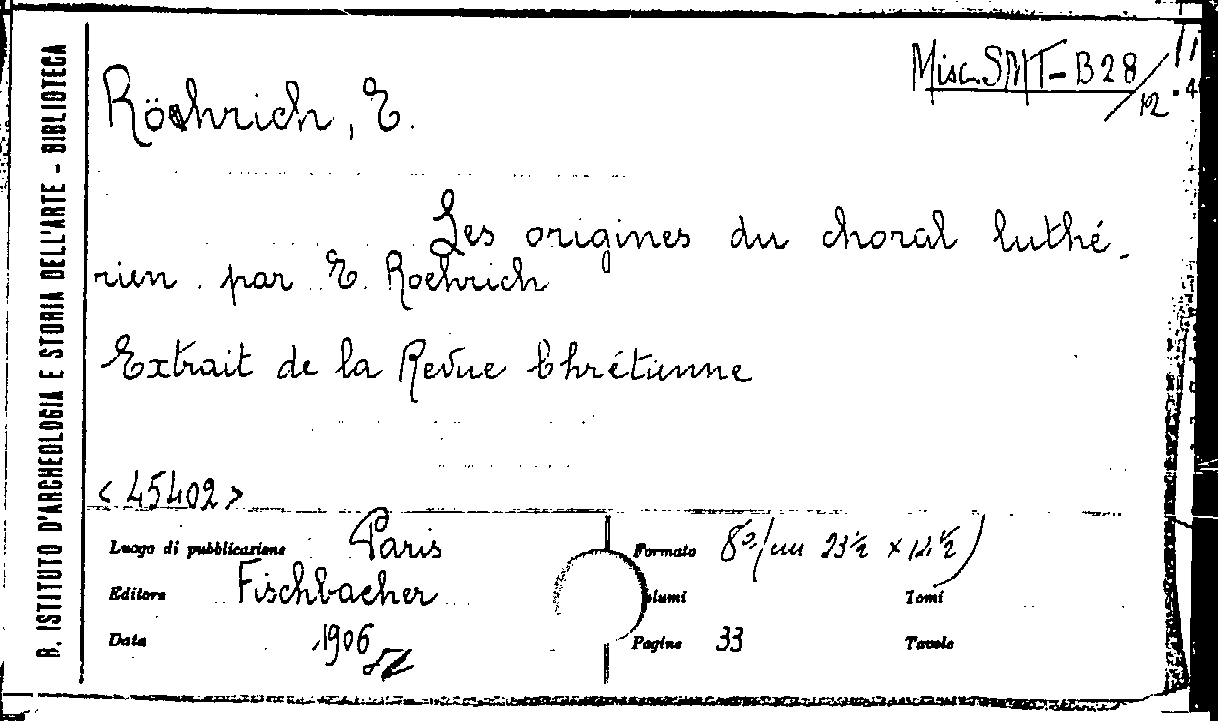 R. ISTITUTO D'ARCHEOLOGIA E STORIA DELL'ARTE - BIBLIOTECA
Misc. SMT-B28/12
Röehrich, E.
Les origines du choral luthé-
rien par E. Roehrich
Extrait de la Revue Chrétienne
<45402>
Luogo di pubblicazione Paris
Formato 8º (cm 23½ x 14½)
Editore Fischbacher
Volumi
Tomi
Data 1906
Pagine 33
Tavole